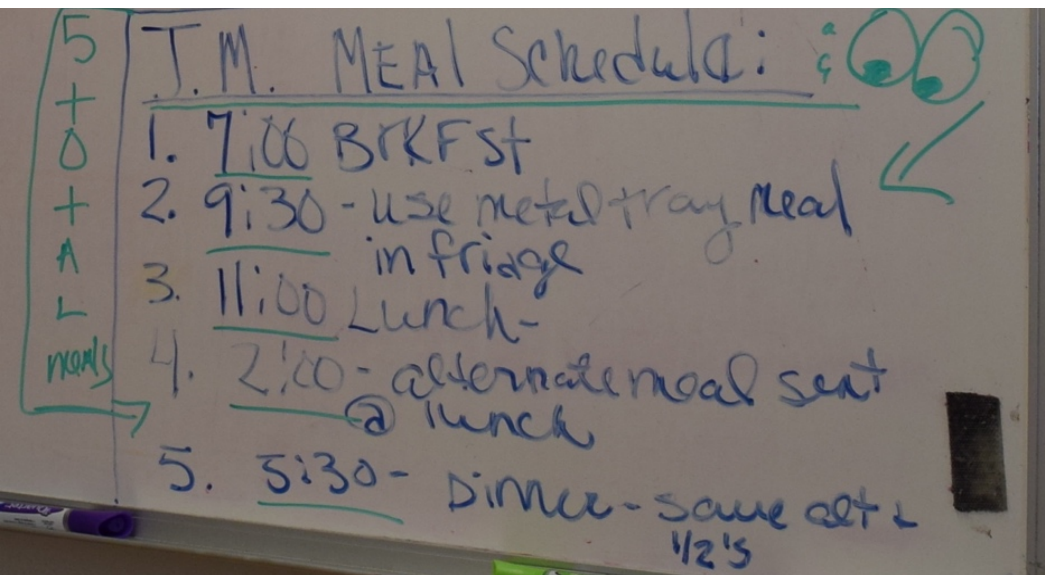 5 tOtAL meals
J.M. MEAl Schedule:
1. 7:00 BrKFSt
2. 9:30 - use metal tray meal
in fridge
3. 11:00 Lunch-
4. 2:00 - alternate meal sent
@ lunch
5. 5:30 - Dinner - save alt &
1/2's